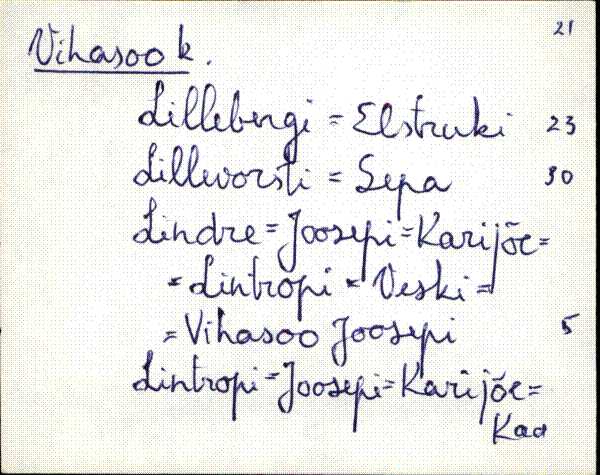 21
Vihasoo k.
Lillebergi = Elstruki 23
Lillevorsti = Sepa 30
Lindre = Joosepi = Karijõe =
= Lintropi = Veski =
= Vihasoo Joosepi 5
Lintropi = Joosepi = Karijõe =
Kao